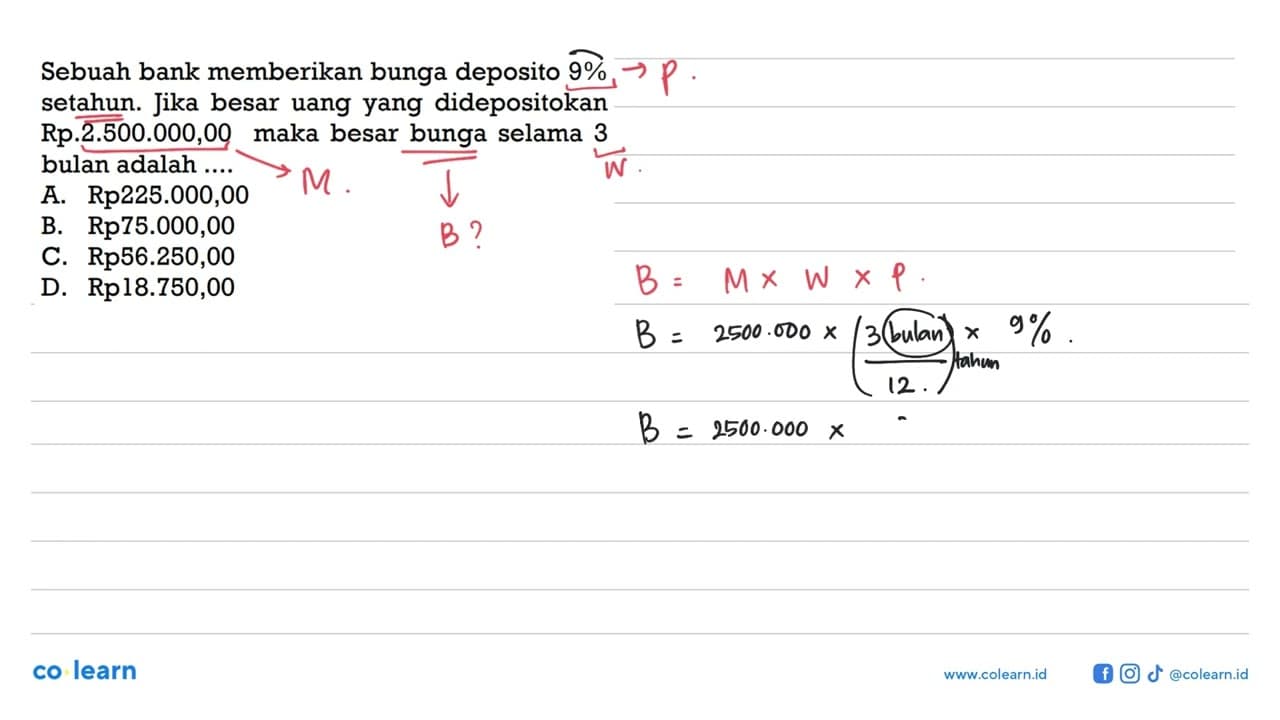 Sebuah bank memberikan bunga deposito 9% → P.
setahun. Jika besar uang yang didepositokan
Rp.2.500.000,00 maka besar bunga selama 3
bulan adalah ....
M.
W.
A. Rp225.000,00
B. Rp75.000,00
B?
C. Rp56.250,00
D. Rp18.750,00
B = M × W × P.
B = 2500.000 × (3 bulan / 12.) tahun × 9%.
B = 2500.000 ×
co learn
www.colearn.id
@colearn.id